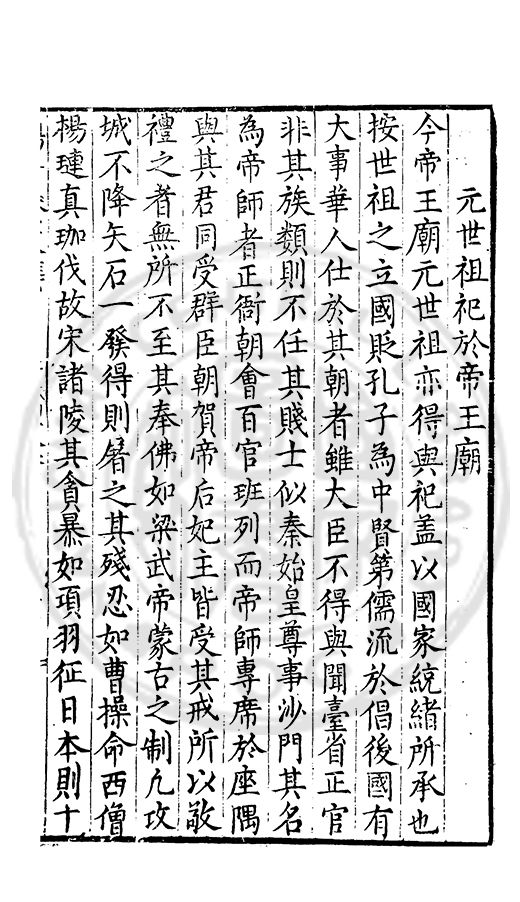 元世祖祀於帝王廟
今帝王廟元世祖亦得與祀盖以國家統緒所承也
按世祖之立國貶孔子為中賢第儒流於倡後國有
大事華人仕於其朝者雖大臣不得與聞臺省正官
非其族類則不任其賤士似秦始皇尊事沙門其名
為帝師者正衙朝會百官班列而帝師專席於座隅
與其君同受群臣朝賀帝后妃主皆受其戒所以敬
禮之者無所不至其奉佛如梁武帝蒙古之制凢攻
城不降矢石一發得則屠之其殘忍如曹操命西僧
楊璉真珈伐故宋諸陵其貪暴如項羽征日本則十